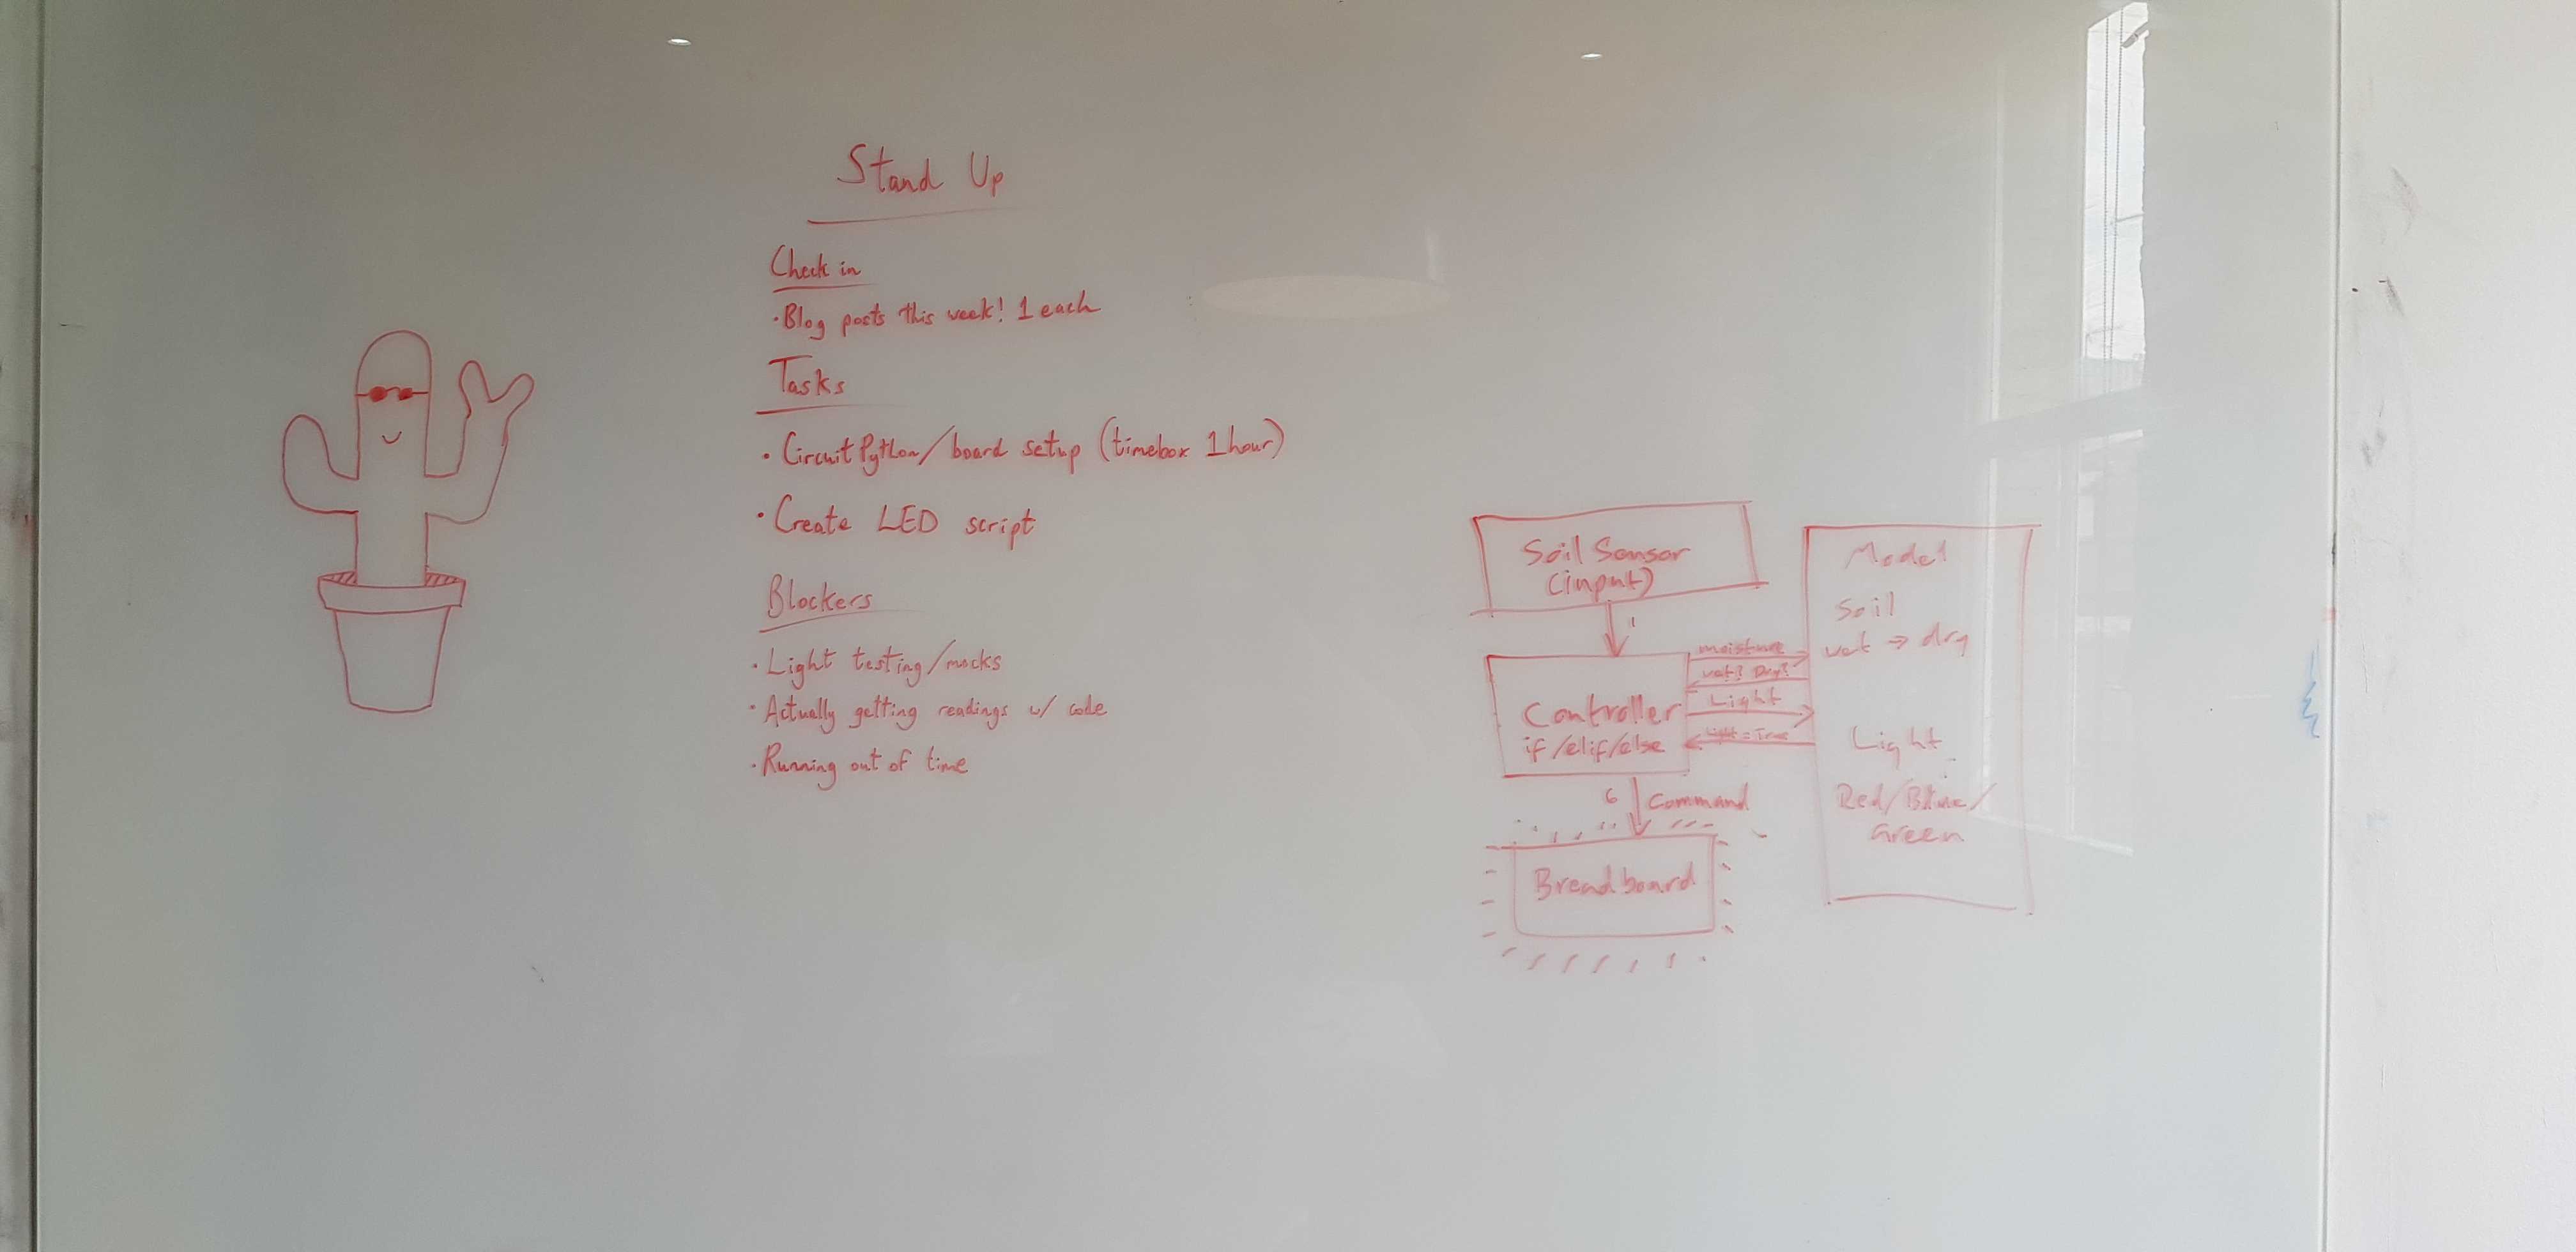 Stand Up
Check in
• Blog posts this week! 1 each
Tasks
• CircuitPython/board setup (timebox 1 hour)
• Create LED script
Blockers
• Light testing/mocks
• Actually getting readings w/ code
• Running out of time
Soil Sensor
(input)
1
Controller
if/elif/else
moisture
wet? Dry?
Light
Light = True
Model
Soil
wet → dry
Light
Red/Blue/
Green
6 Command
Breadboard